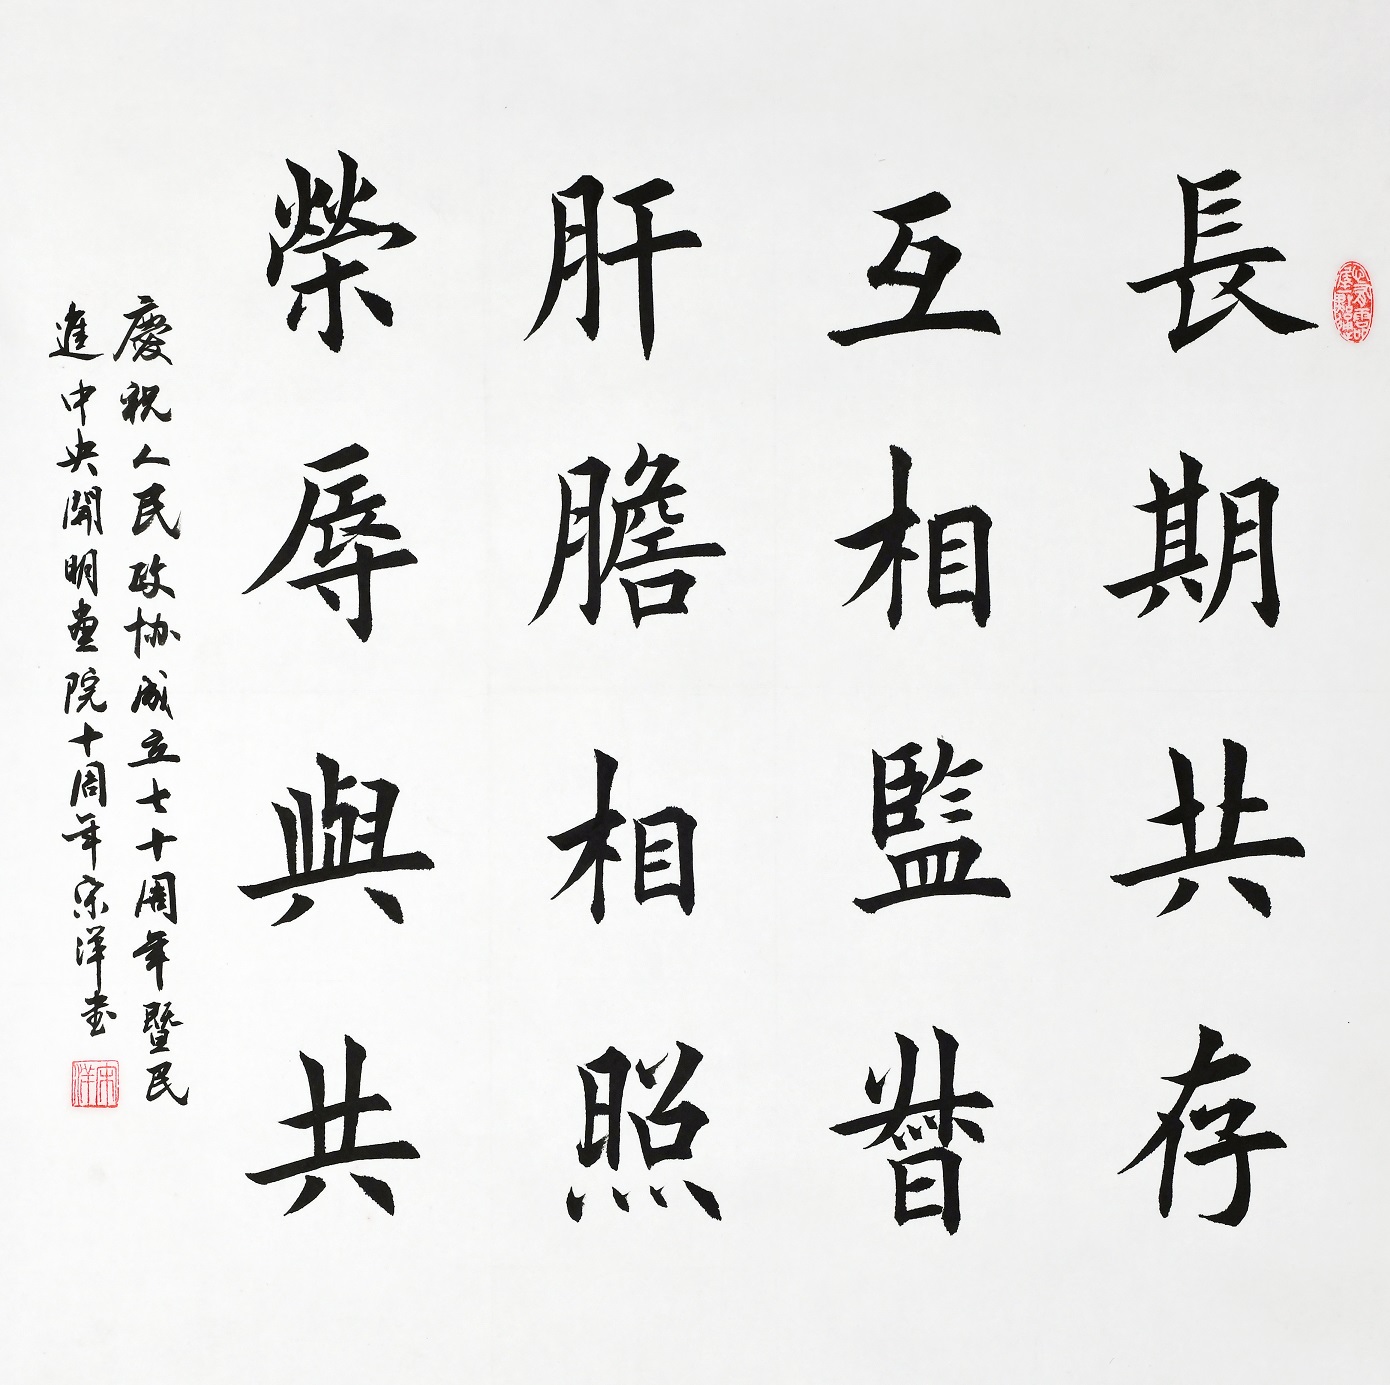 長期共存
互相監督
肝膽相照
榮辱與共
慶祝人民政协成立七十周年暨民
進中央開明畫院十周年宋洋書
宋洋